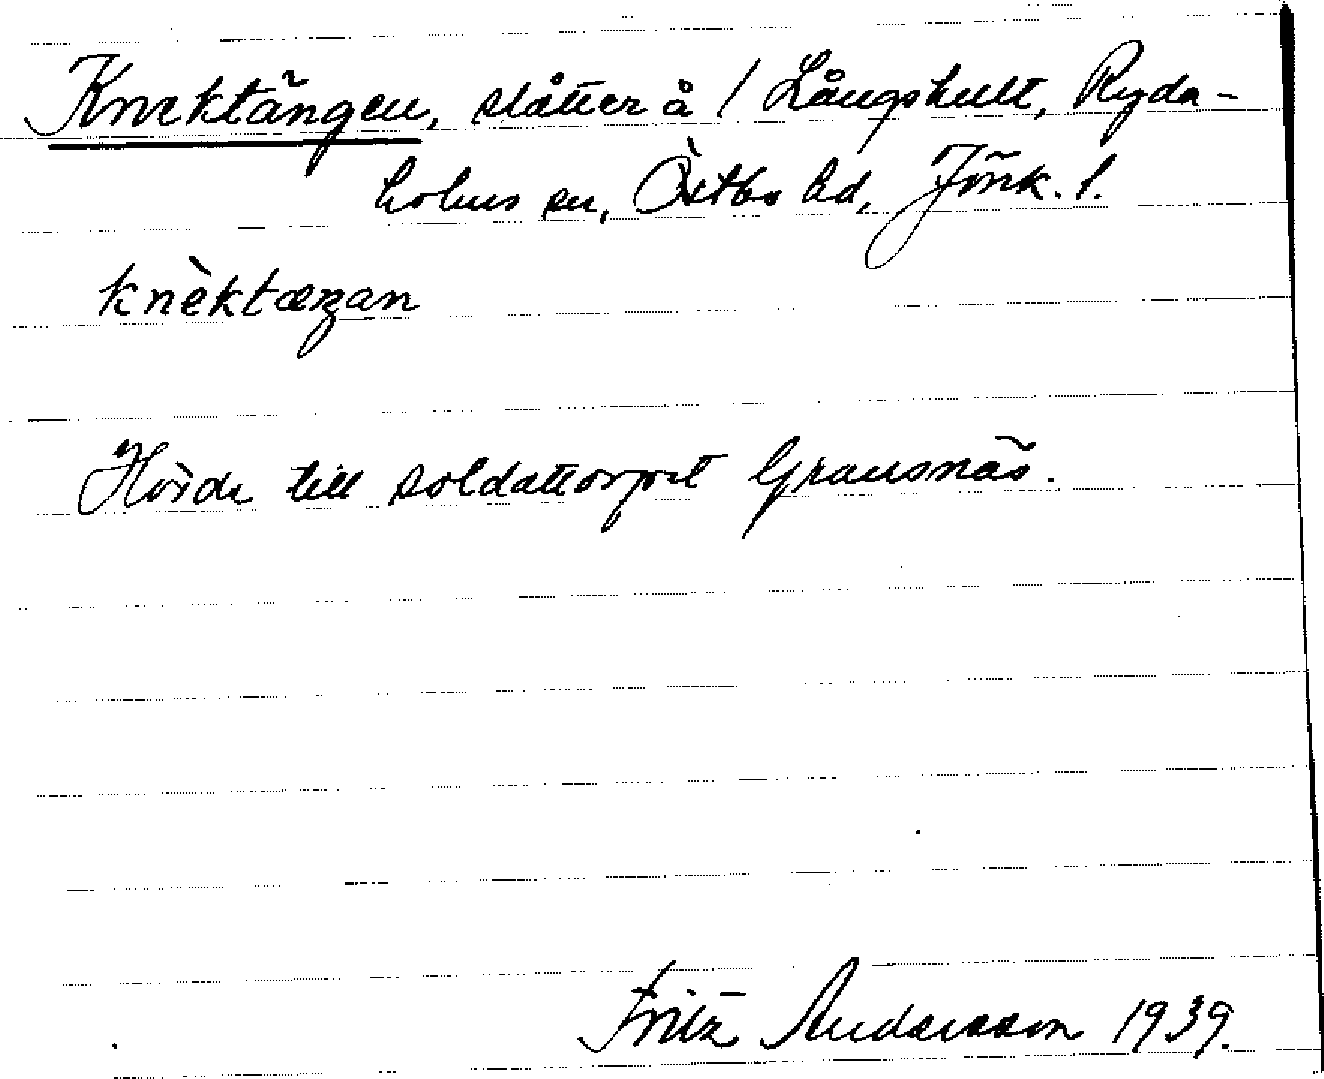 Knektängen, slåtter å / Långshult, Ryda-
holms sn, Östbo hd, Jönk. l.
knèktæŋan
Hörde till soldattorpet Gransnäs.
Fritz Andersson 1939.